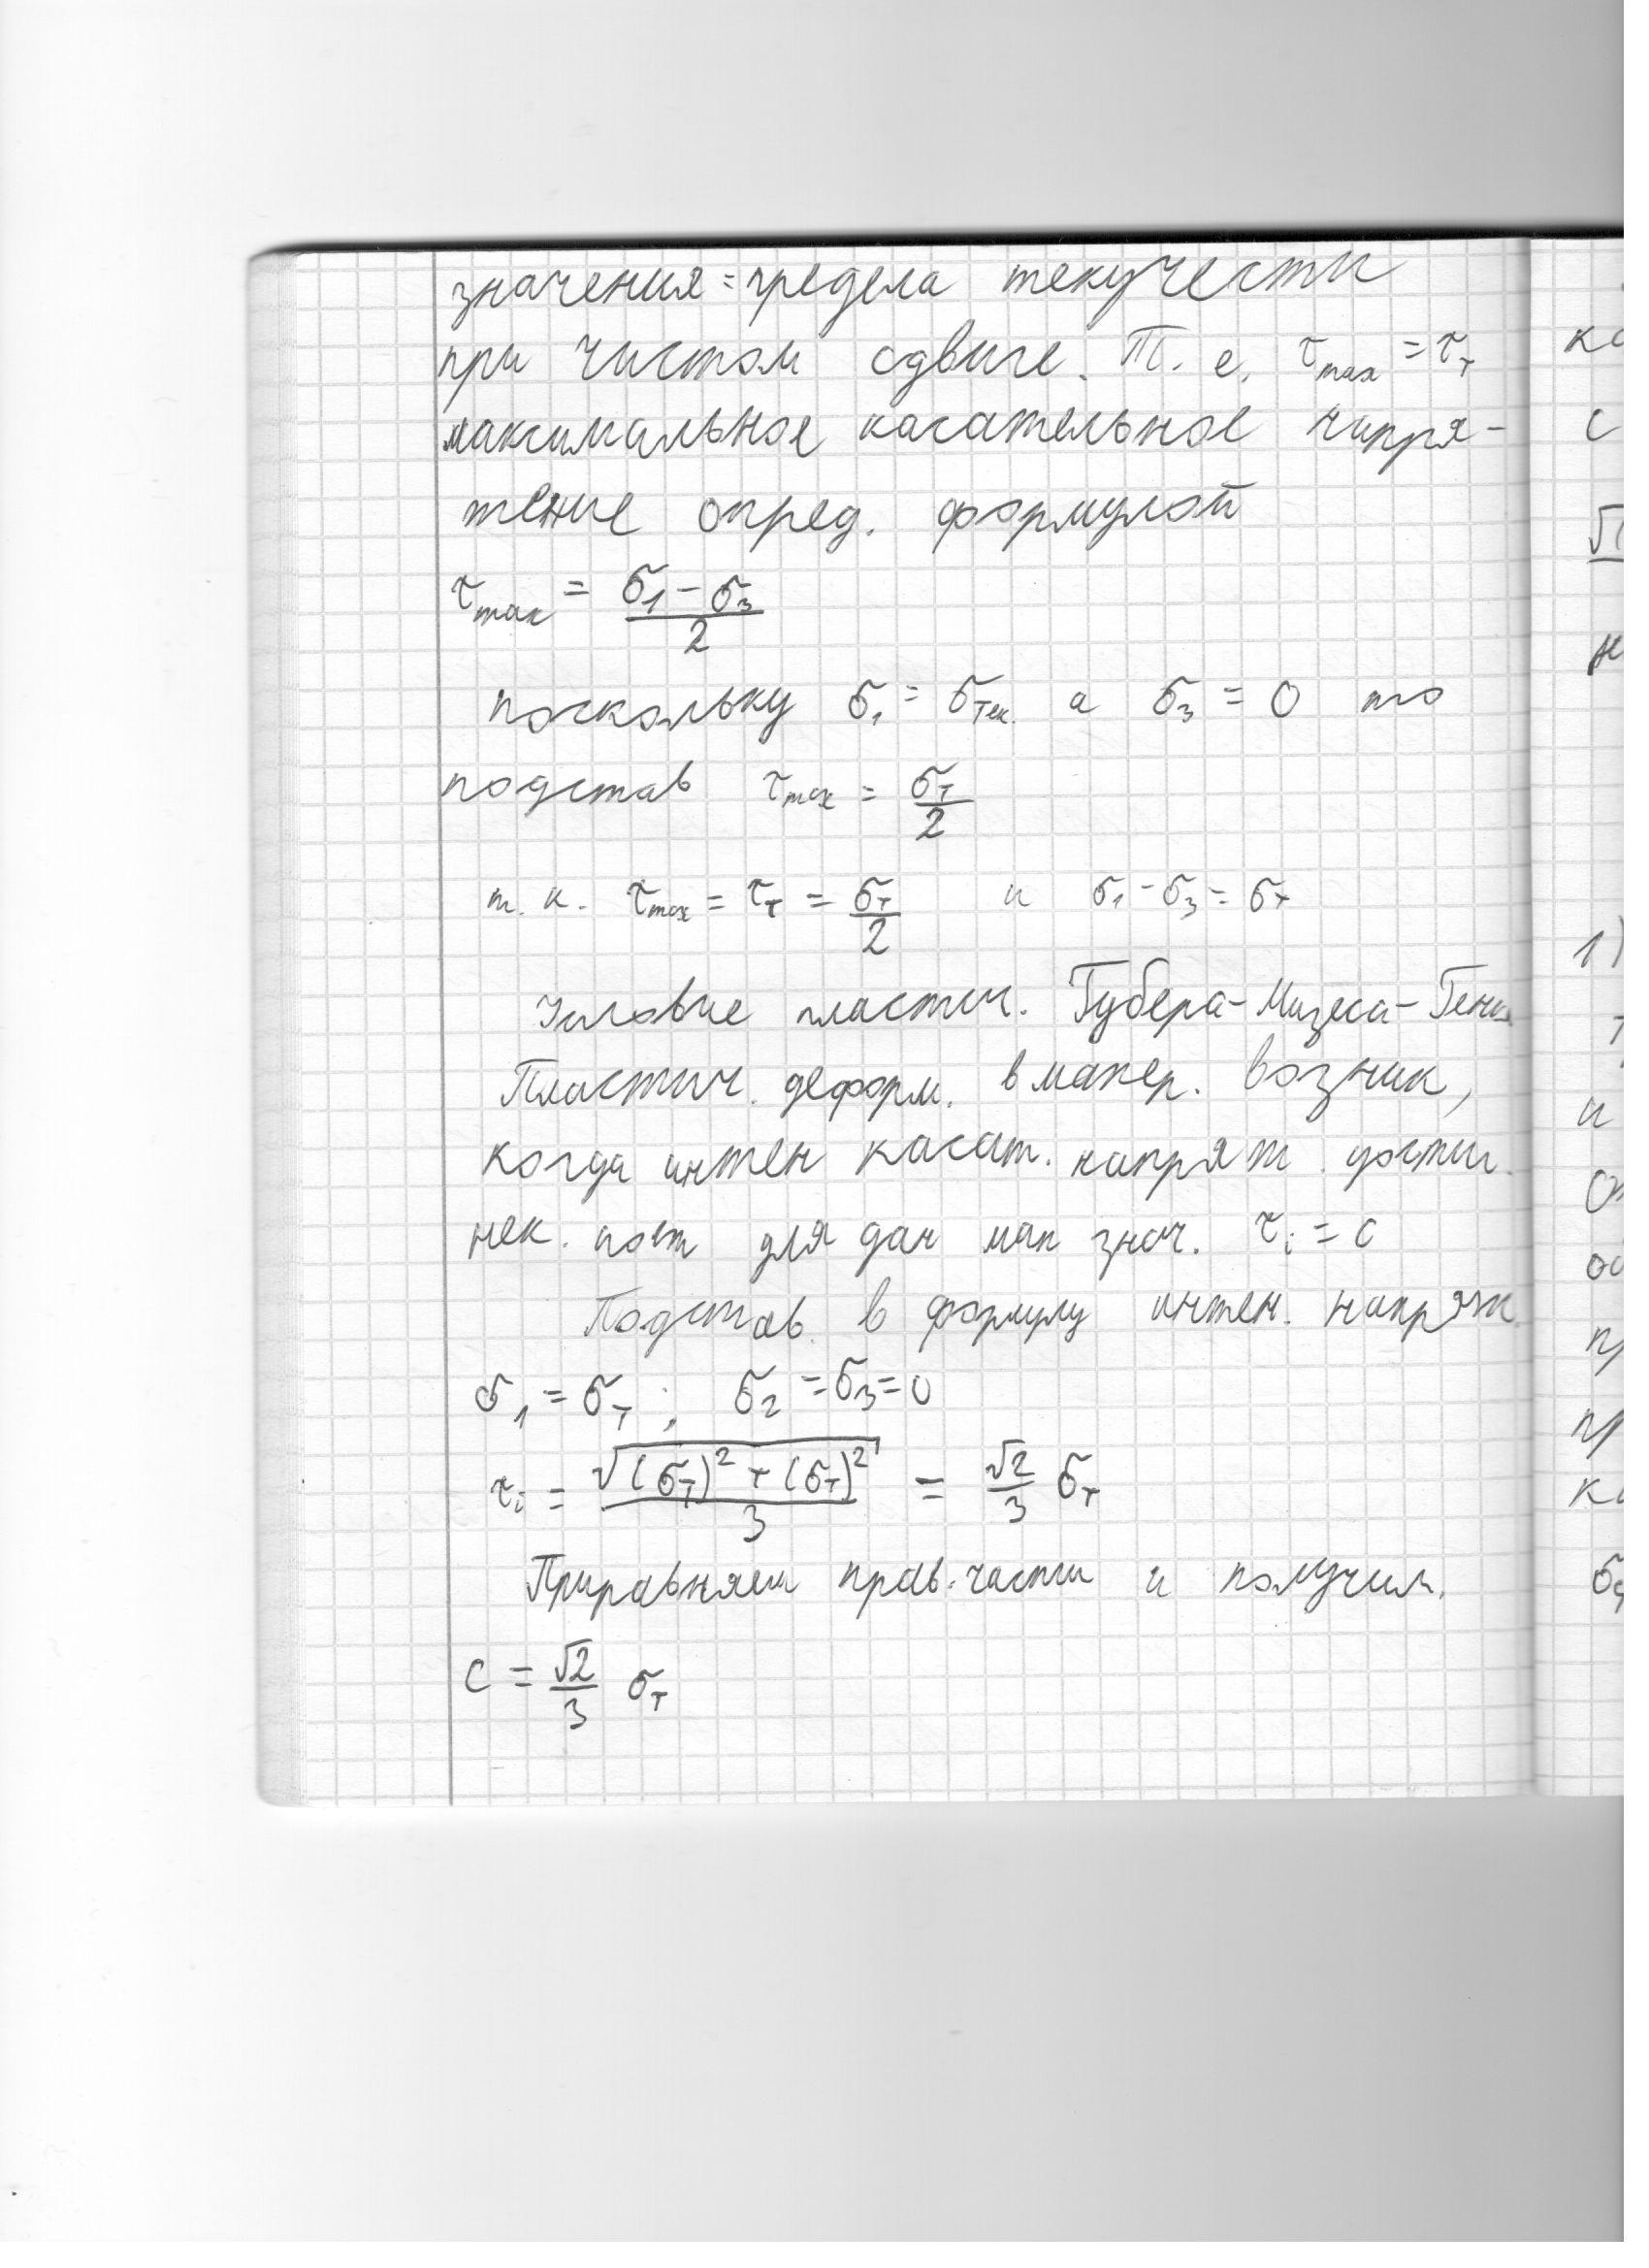 значения = предела текучести
при чистом сдвиге. Т. е. τmax = τт
максимальное касательное напря-
жение опред. формулой
τmax = (σ1 − σ3) / 2
поскольку σ1 = σтек. а σ3 = 0 то
подстав τmax = σт / 2
т. к. τmax = τт = σт / 2 и σ1 − σ3 = σт
Условие пластич. Губера-Мизеса-Генки
Пластич. деформ. в матер. возник,
когда интен касат. напряж. достиг.
нек. пост для дан мат знач. τi = c
Подстав. в формулу интен. напряж.
σ1 = σт ; σ2 = σ3 = 0
τi = √((σт)² + (σт)²) / 3 = √2/3 σт
Приравняем прав. части и получим.
c = √2/3 σт
ка
с
√(
н
1)
и
от
об
пр
пр
ка